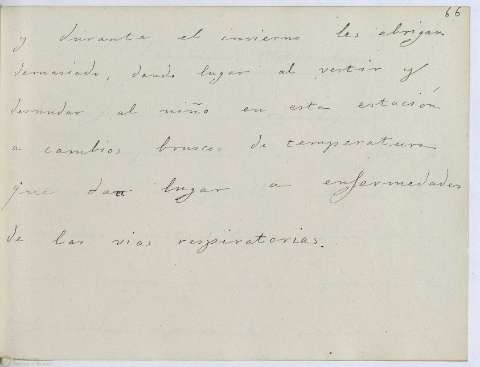 66
y durante el invierno les abrigan
demasiado, dando lugar al vestir y
desnudar al niño en esta estación
a cambios bruscos de temperatura
que dan lugar a enfermedades
de las vias respiratorias.